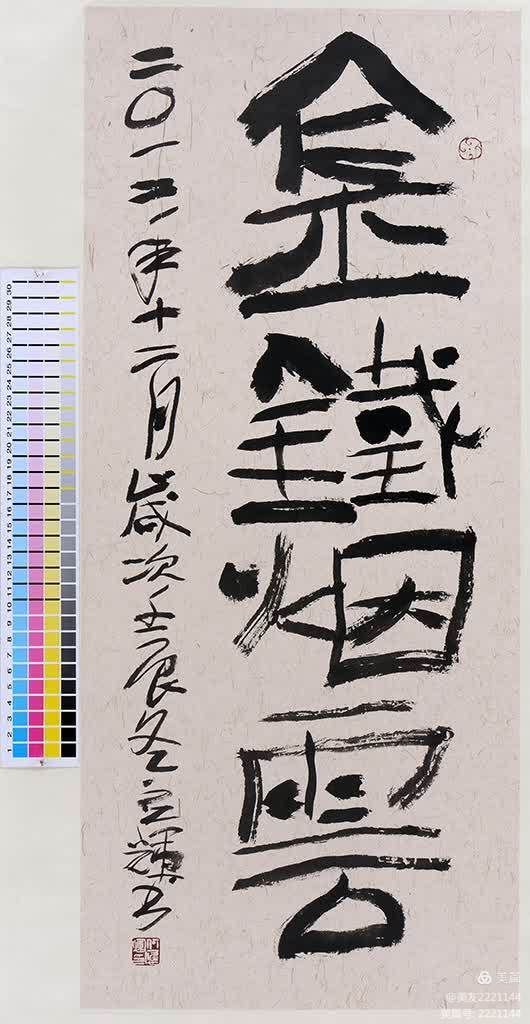 金鐵烟雲
二〇一二年十二月歲次壬辰冬立輝书
1 2 3 4 5 6 7 8 9 10 11 12 13 14 15 16 17 18 19 20 21 22 23 24 25 26 27 28 29 30
美篇
@美友2221144
美篇号: 2221144